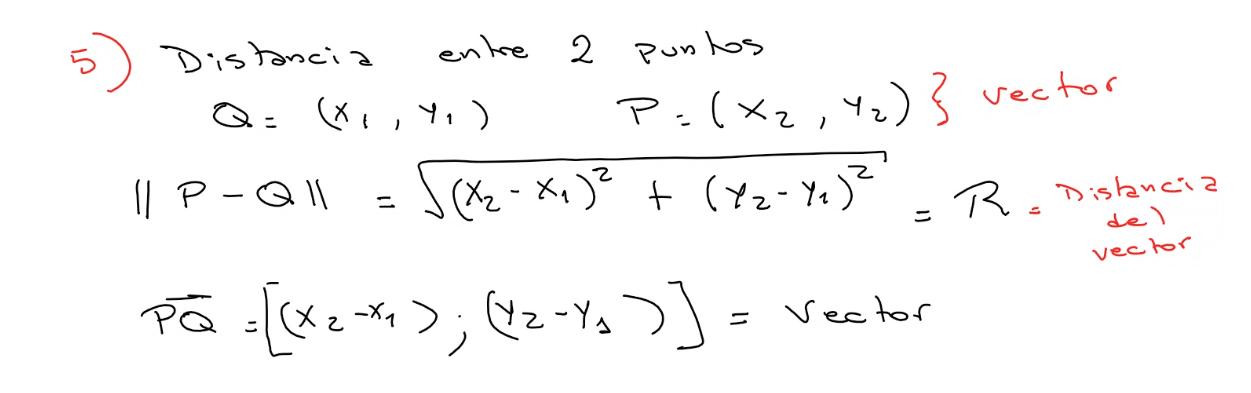 5) Distancia entre 2 puntos
Q = (x₁, y₁) P = (x₂, y₂) } vector
|| P - Q || = √(x₂ - x₁)² + (y₂ - y₁)² = R = Distancia del vector
PQ = [(x₂ - x₁) ; (y₂ - y₁)] = vector